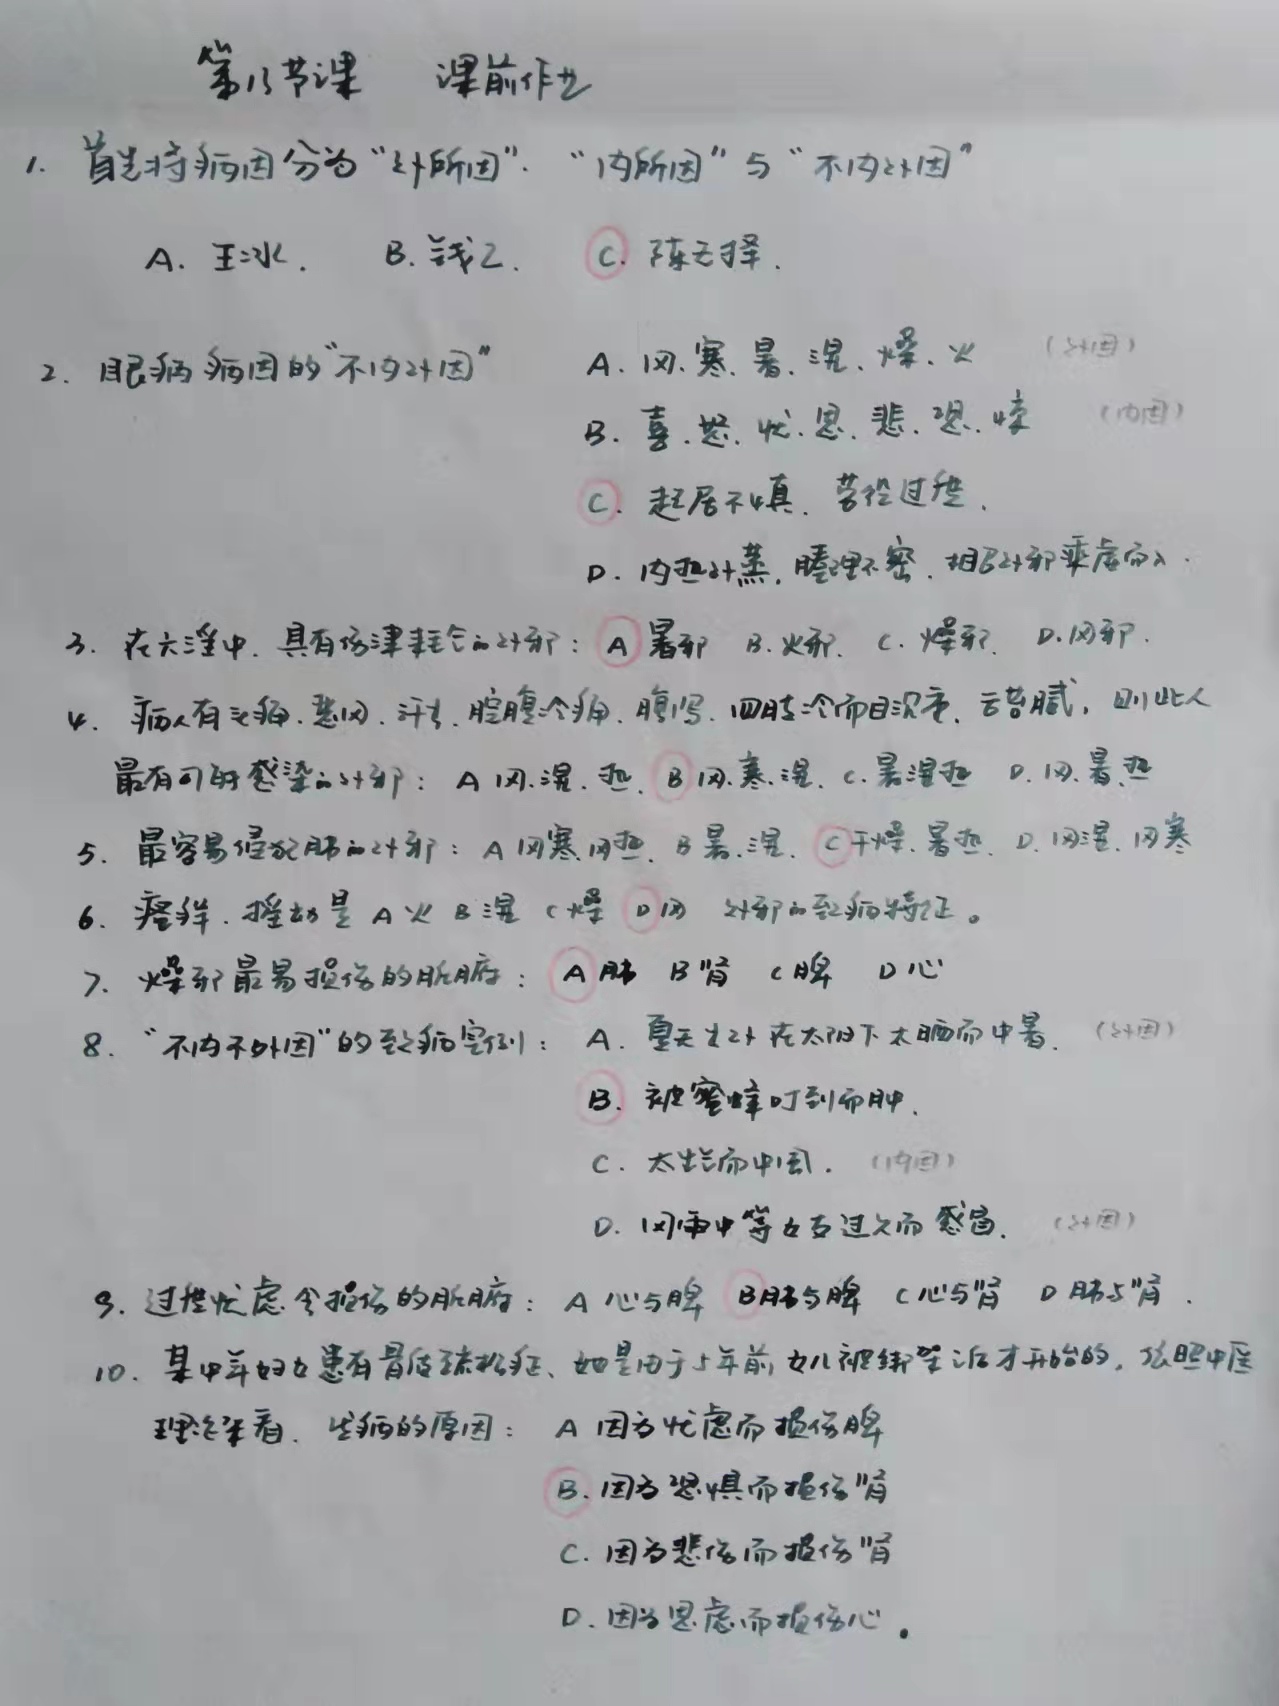 第13节课 课前作业
1. 首先将病因分为“外所因”.“内所因”与“不内外因”
A. 王冰. B. 钱乙. C. 陈无择.
2. 眼病病因的“不内外因” A. 风.寒.暑.湿.燥.火 (外因)
B. 喜.怒.忧.思.悲.恐.惊 (内因)
C. 起居不慎.劳役过度.
D. 内热外蒸,腠理不密.招致外邪乘虚而入.
3. 在六淫中.具有伤津耗气的外邪: A 暑邪 B.火邪. C. 燥邪. D.风邪.
4. 病人有头痛.恶风.汗出.脘腹冷痛.腹泻.四肢冷而目沉重.舌苔腻,则此人
最有可能感染的外邪: A 风.湿.热. B 风.寒.湿. C.暑湿热 D.风.暑.热
5. 最容易侵犯肺的外邪: A 风寒.风热. B 暑.湿. C 干燥.暑热. D.风湿.风寒
6. 瘙痒.摇动是 A 火 B 湿 C 燥 D 风 外邪的致病特征。
7. 燥邪最易损伤的脏腑: A 肺 B 肾 C 脾 D 心
8. “不内不外因”的致病实例: A. 夏天出外在太阳下太晒而中暑. (外因)
B. 被蜜蜂叮到而肿.
C. 太生气而中风. (内因)
D. 风雨中等女友过久而感冒. (外因)
9. 过度忧虑会损伤的脏腑: A 心与脾 B 肺与脾 C 心与肾 D 肺与肾.
10. 某中年妇女患有骨质疏松症、她是由于5年前女儿被绑架后才开始的,依照中医
理论来看.生病的原因: A 因为忧虑而损伤脾
B. 因为恐惧而损伤肾
C. 因为悲伤而损伤肾
D. 因为思虑而损伤心.